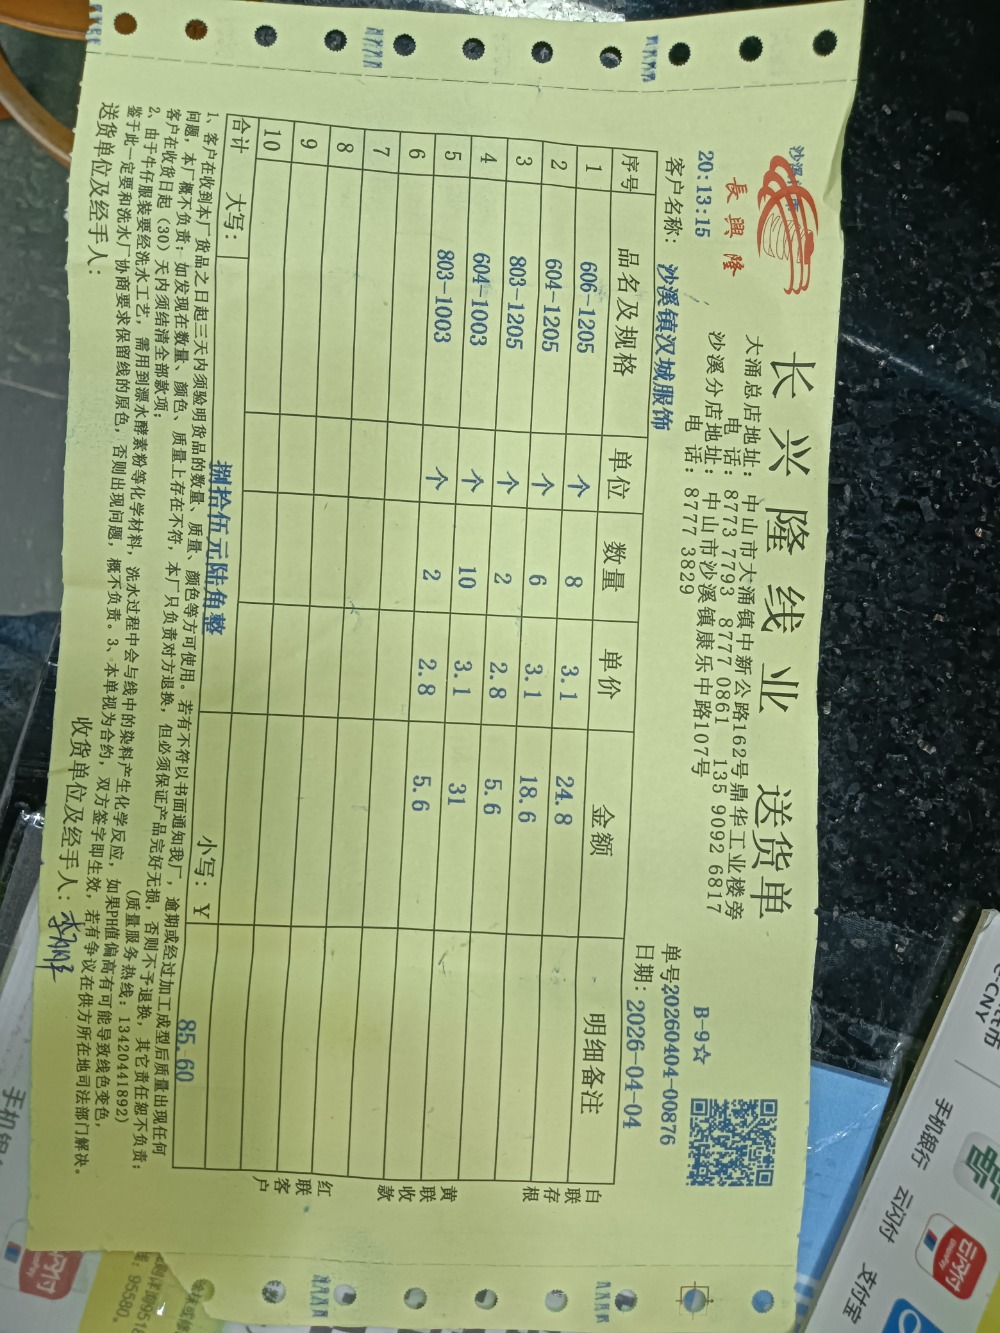 长兴隆线业 送货单
長興隆
大涌总店地址：中山市大涌镇中新公路162号鼎华工业楼旁
电 话：8773 7793 8777 0861 135 9092 6817
沙溪分店地址：中山市沙溪镇康乐中路107号
电 话：8777 3829
20:13:15
B-9☆
单号20260404-00876
客户名称：沙溪镇汉城服饰 日期：2026-04-04
序号 品名及规格 单位 数量 单价 金额 明细备注
1 606-1205 个 8 3.1 24.8
2 604-1205 个 6 3.1 18.6
3 803-1205 个 2 2.8 5.6
4 604-1003 个 10 3.1 31
5 803-1003 个 2 2.8 5.6
6
7
8
9
10
合计 大写：捌拾伍元陆角整 小写：¥ 85.60
白联存根
黄联收款
红联客户
1、客户在收到本厂货品之日起三天内须验明货品的数量、质量、颜色等方可使用。若有不符以书面通知我厂，逾期或经过加工成型后质量出现任何
问题，本厂概不负责；如发现在数量、颜色、质量上存在不符，本厂只负责对方退换，但必须保证产品完好无损，否则不予退换，其它责任恕不负责；
客户在收货日起（30）天内须结清全部款项； （质量服务热线：13420441892）
2、由于牛仔服装要经洗水工艺，需用到漂水酵素粉等化学材料，洗水过程中会与线中的染料产生化学反应，如果PH值偏高有可能导致线色变色，
鉴于此一定要和洗水厂协商要求保留线的原色，否则出现问题，概不负责。3、本单视为合约，双方签字即生效，若有争议在供方所在地司法部门解决。
送货单位及经手人： 收货单位及经手人：
e-CNY
手机银行 云闪付 支付宝
云闪付
95580